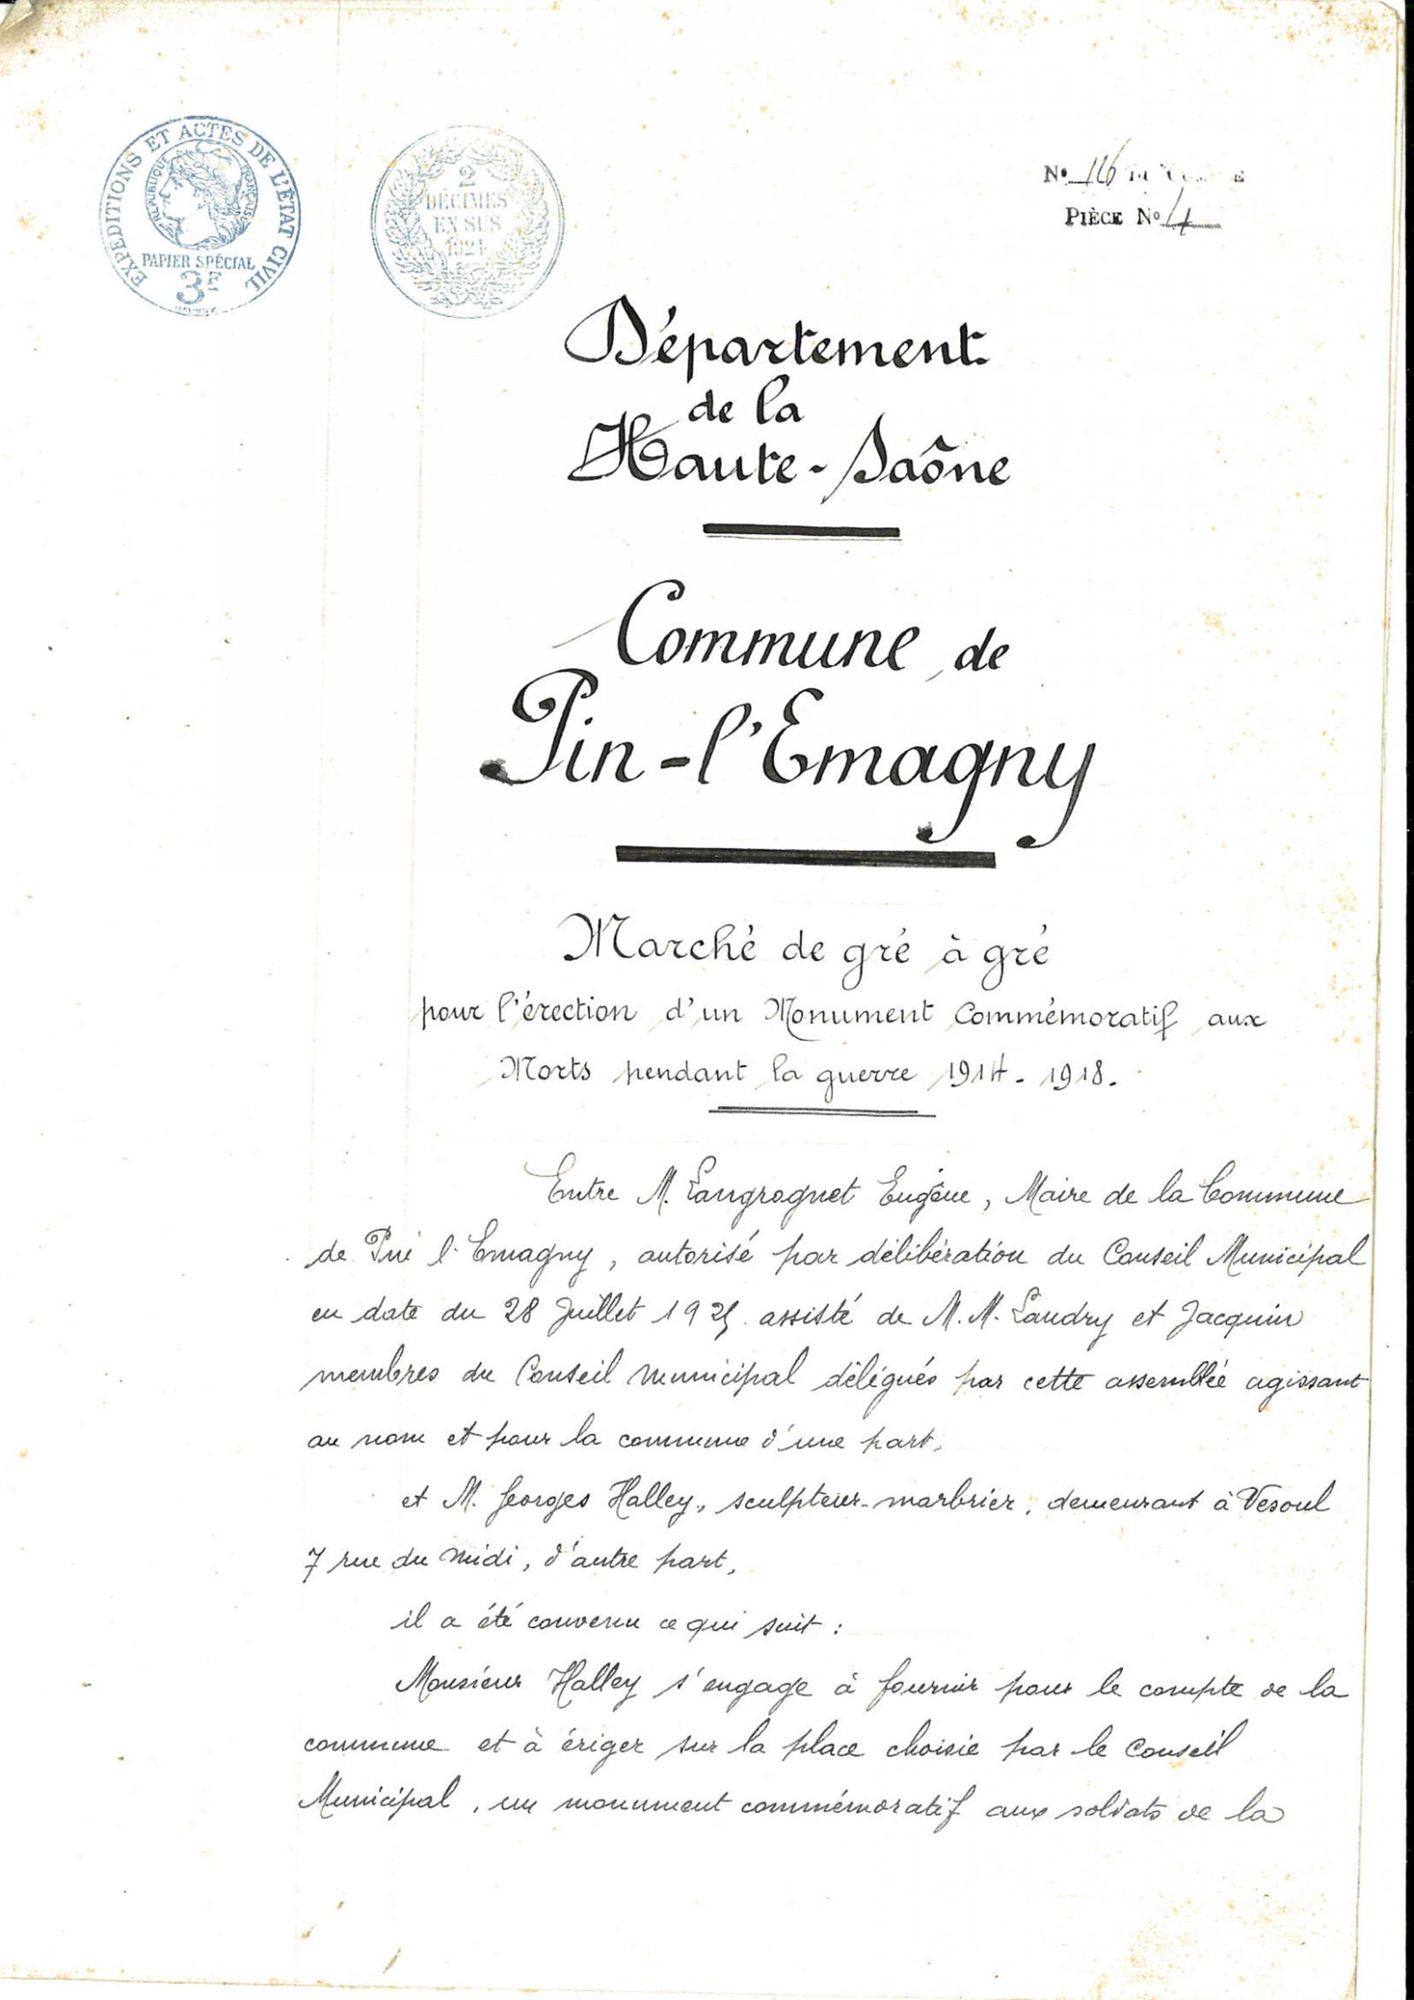 EXPÉDITIONS ET ACTES DE L'ÉTAT CIVIL
RÉPUBLIQUE FRANÇAISE
PAPIER SPÉCIAL
3F
2
DÉCIMES
EN SUS
1921
N° 116
PIÈCE N° 4
Département
de la
Haute-Saône
Commune de
Pin-l'Emagny
Marché de gré à gré
pour l'érection d'un Monument Commémoratif aux
Morts pendant la guerre 1914-1918.
Entre M. Langrognet Eugène, Maire de la Commune
de Pin l'Emagny, autorisé par délibération du Conseil Municipal
en date du 28 Juillet assisté de M.M. Landry et Jacquin
membres du Conseil Municipal délégués par cette assemblée agissant
au nom et pour la commune d'une part,
et M. Georges Halley, sculpteur-marbrier, demeurant à Vesoul
7 rue du Midi, d'autre part,
il a été convenu ce qui suit :
Monsieur Halley s'engage à fournir pour le compte de la
commune et à ériger sur la place choisie par le Conseil
Municipal, un monument commémoratif aux soldats de la